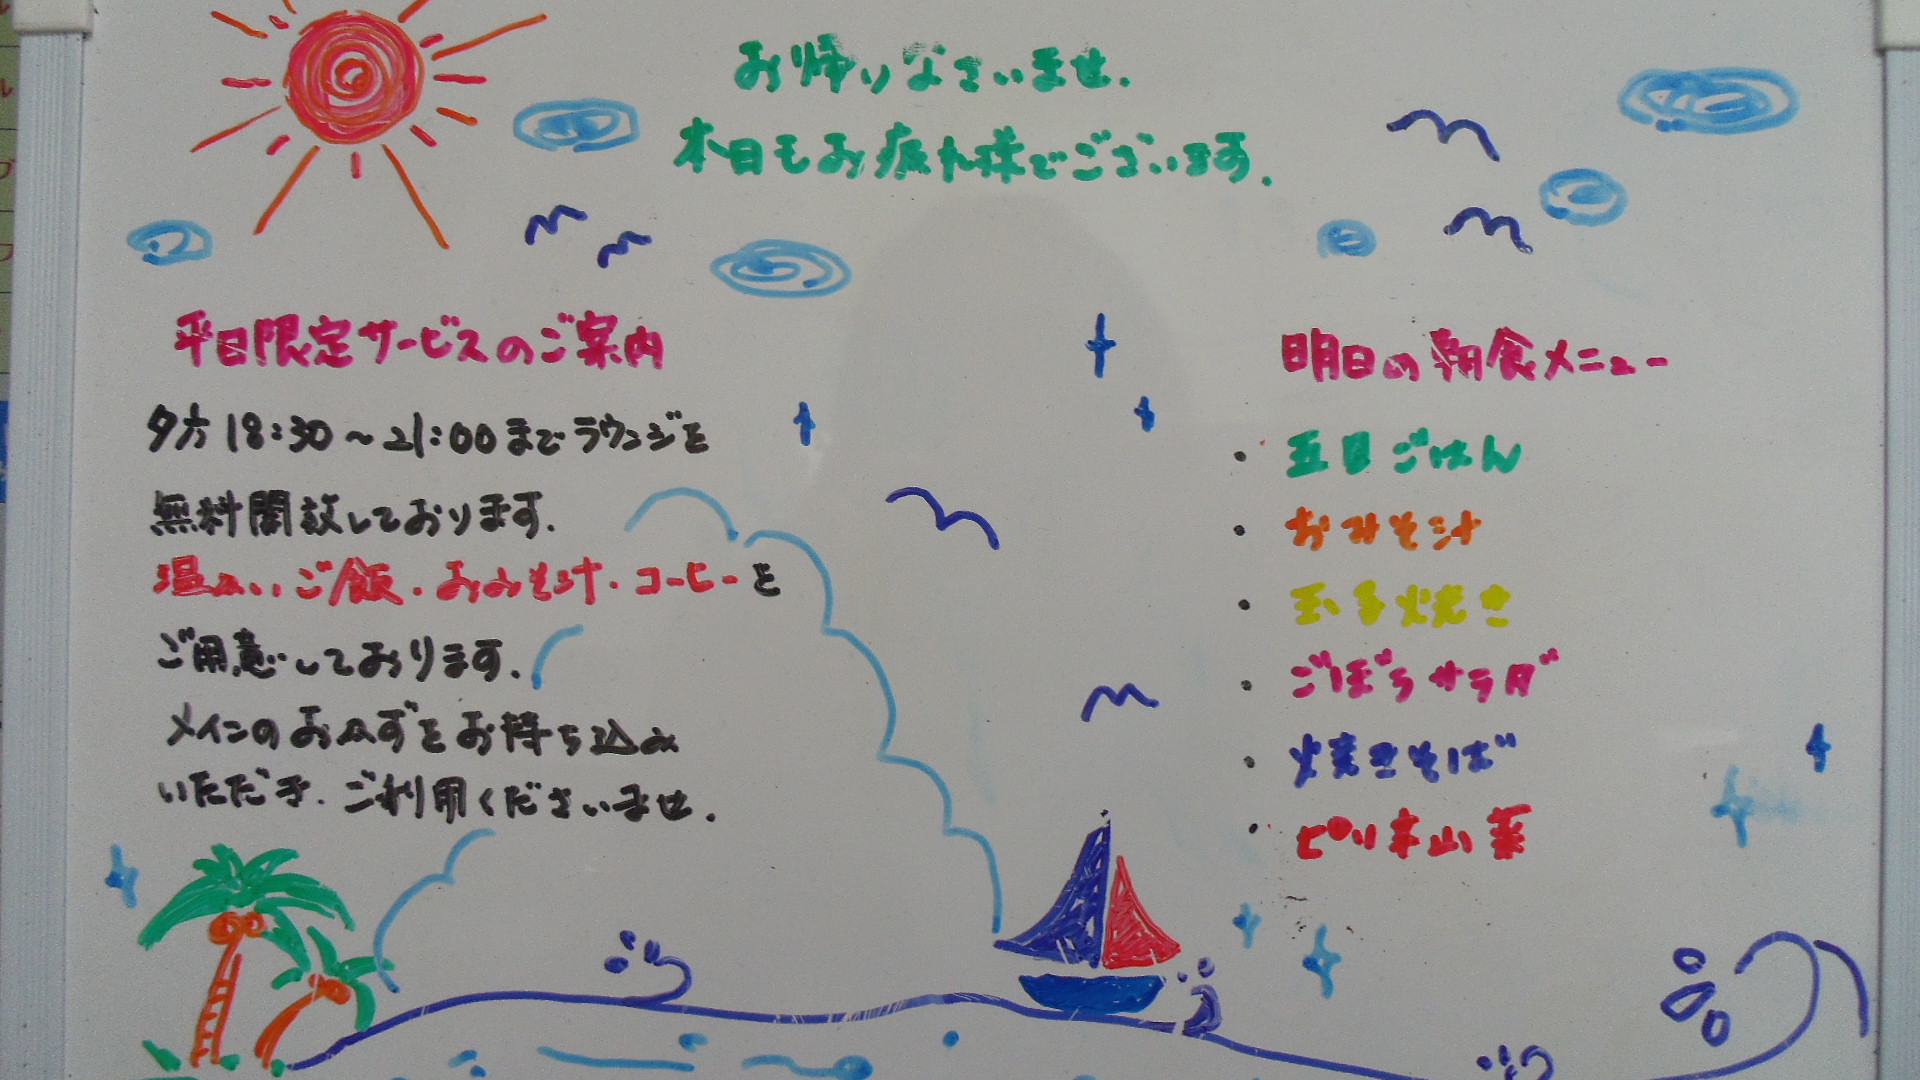 お帰りなさいませ.
本日もお疲れ様でございます.
平日限定サービスのご案内
夕方18:30～21:00までラウンジを
無料開放しております.
温かいご飯・おみそ汁・コーヒーを
ご用意しております.
メインのおかずをお持ち込み
いただき.ご利用くださいませ.
明日の朝食メニュー
・五目ごはん
・おみそ汁
・玉子焼き
・ごぼうサラダ
・焼きそば
・ピリ辛山菜